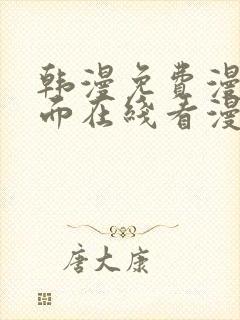 韩漫免费漫
而在线看漫
唐大康